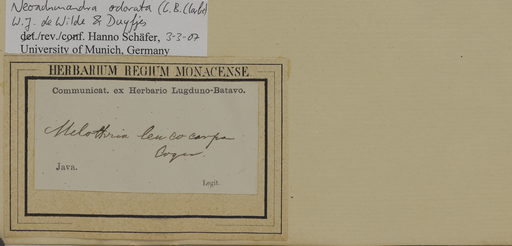 Neoachmandra odorata (C.B. Clarke)
W.J. de Wilde & Duyfjes
det./rev./conf. Hanno Schäfer, 3-3-07
University of Munich, Germany
HERBARIUM REGIUM MONACENSE
Communicat. ex Herbario Lugduno-Batavo.
Melothria leucocarpa
Cogn.
Java.
Legit.